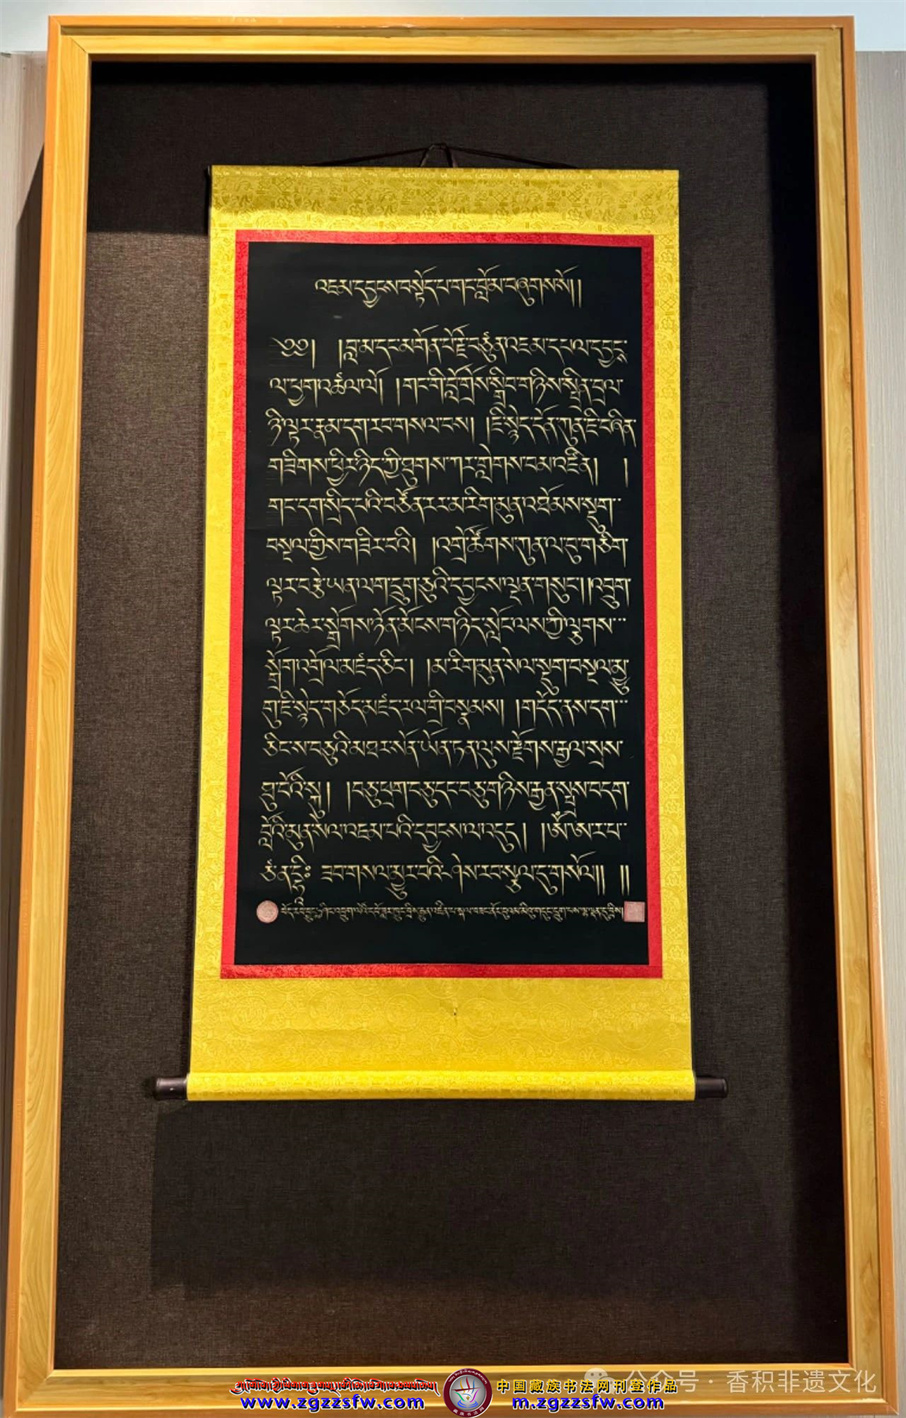 འཇམ་དབྱངས་བསྟོད་པ་གང་བློ་མ་བཞུགས་སོ།།
༄༅། །བླ་མ་དང་མགོན་པོ་རྗེ་བཙུན་འཇམ་དཔལ་དབྱངས
ལ་ཕྱག་འཚལ་ལོ། །གང་གི་བློ་གྲོས་སྒྲིབ་གཉིས་སྤྲིན་བྲལ་
ཉི་ལྟར་རྣམ་དག་རབ་གསལ་བས། །ཇི་སྙེད་དོན་ཀུན་ཇི་བཞིན་
གཟིགས་ཕྱིར་ཉིད་ཀྱི་ཐུགས་ཀར་གླེགས་བམ་འཛིན། །
གང་དག་སྲིད་པའི་བཙོན་རར་མ་རིག་མུན་འཐོམས་སྡུག་
བསྔལ་གྱིས་གཟིར་བའི། །འགྲོ་ཚོགས་ཀུན་ལ་བུ་གཅིག་
ལྟར་བརྩེ་ཡན་ལག་དྲུག་ཅུའི་དབྱངས་ལྡན་གསུང་།།འབྲུག་
ལྟར་ཆེར་སྒྲོགས་ཉོན་མོངས་གཉིད་སློང་ལས་ཀྱི་ལྕགས་
སྒྲོག་འགྲོལ་མཛད་ཅིང་། །མ་རིག་མུན་སེལ་སྡུག་བསྔལ་མྱུ་
གུ་ཇི་སྙེད་གཅོད་མཛད་རལ་གྲི་བསྣམས། །གདོད་ནས་དག་
ཅིང་ས་བཅུའི་མཐར་སོན་ཡོན་ཏན་ལུས་རྫོགས་རྒྱལ་སྲས་
ཐུ་བོའི་སྐུ། །བཅུ་ཕྲག་བཅུ་དང་བཅུ་གཉིས་རྒྱན་སྤྲས་བདག་
བློའི་མུན་སེལ་འཇམ་པའི་དབྱངས་ལ་འདུད། །ཨོཾ་ཨ་ར་པ་
ཙ་ན་དྷཱིཿ ཟབ་གསལ་མྱུར་བའི་ཤེས་རབ་སྩལ་དུ་གསོལ།། །།
公众号·香积非遗文化
中国藏族书法网刊登作品
www.zgzzsfw.com m.zgzzsfw.com